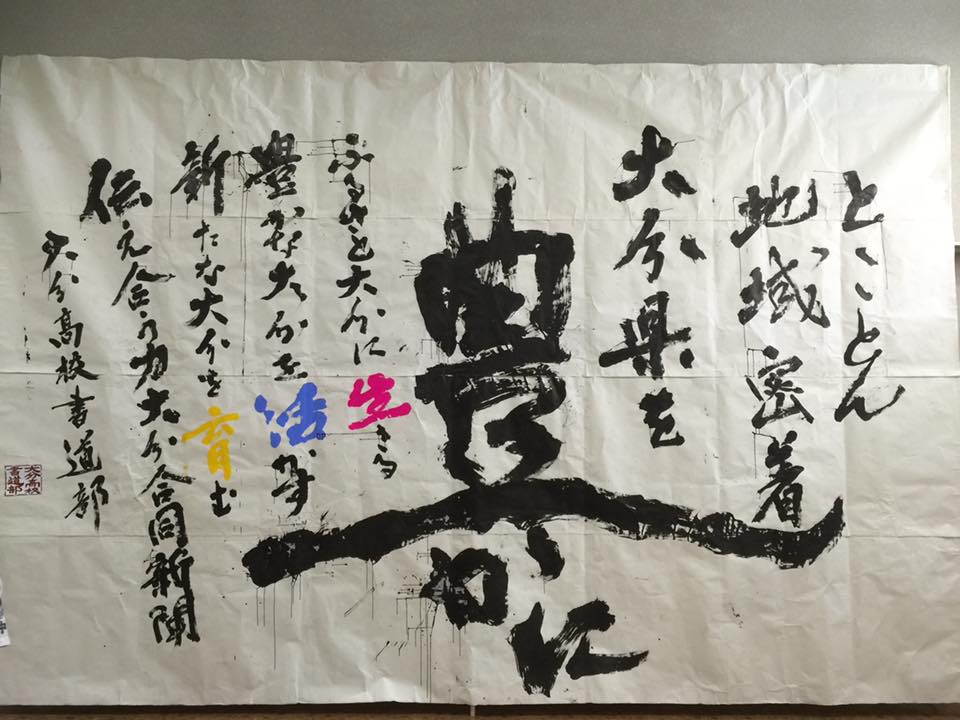 とことん
地域密着
大分県を
豊かに
ふるさと大分に生きる
豊かな大分を活かす
新たな大分を育む
伝え合う力大分合同新聞
大分高校書道部
大分高校
書道部